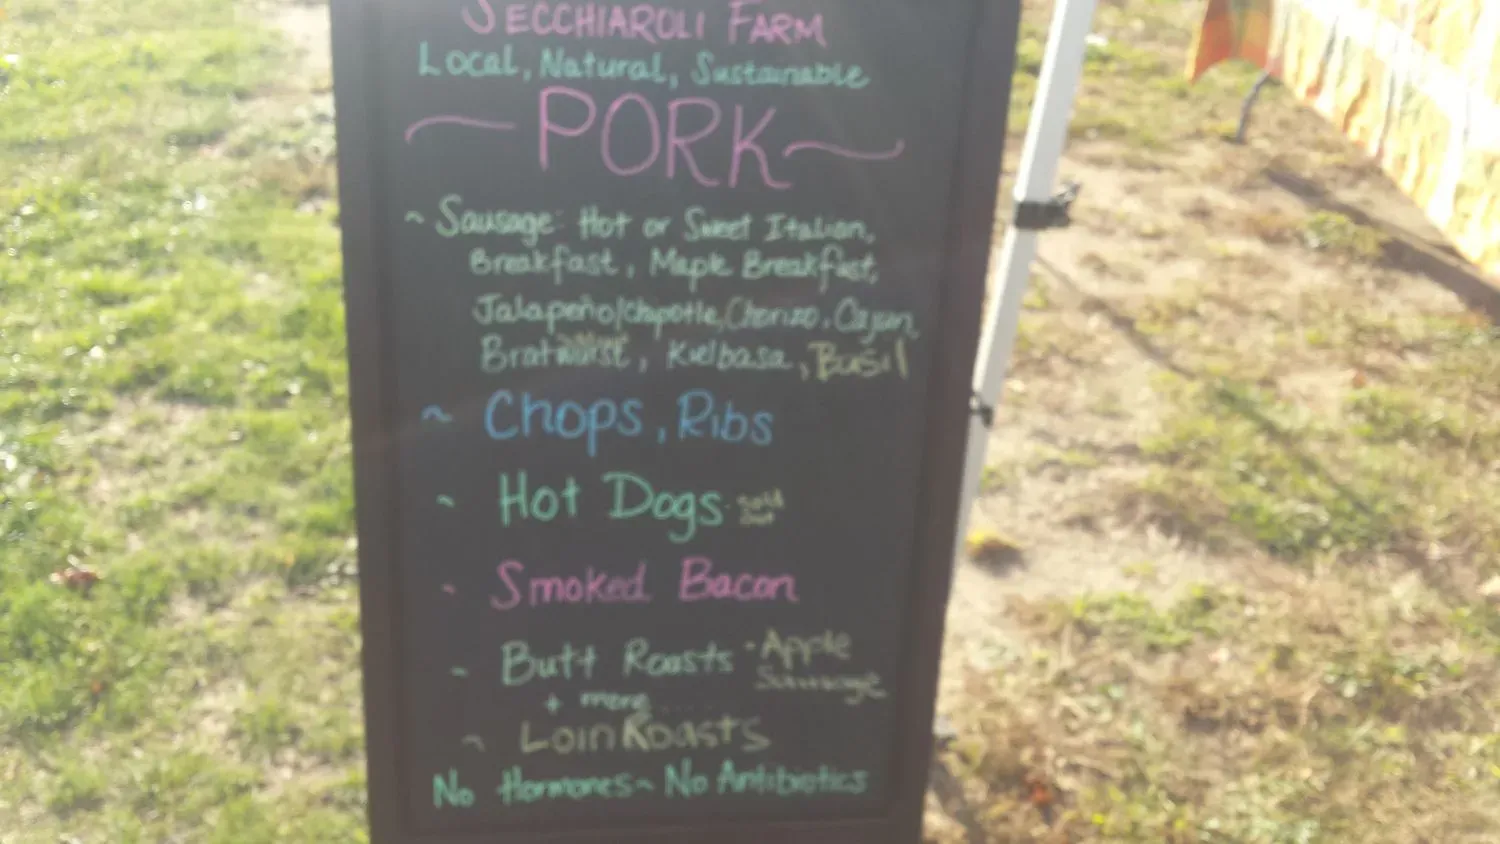 SECCHIAROLI FARM
Local, Natural, Sustainable
~ PORK ~
~ Sausage: Hot or Sweet Italian,
Breakfast, Maple Breakfast,
Jalapeño/Chipotle, Chorizo, Cajun,
Bratwurst, Kielbasa, Basil
~ Chops, Ribs
~ Hot Dogs - Sold
Out
- Smoked Bacon
~ Butt Roasts - Apple
Sausage
+ more
~ Loin Roasts
No Hormones ~ No Antibiotics